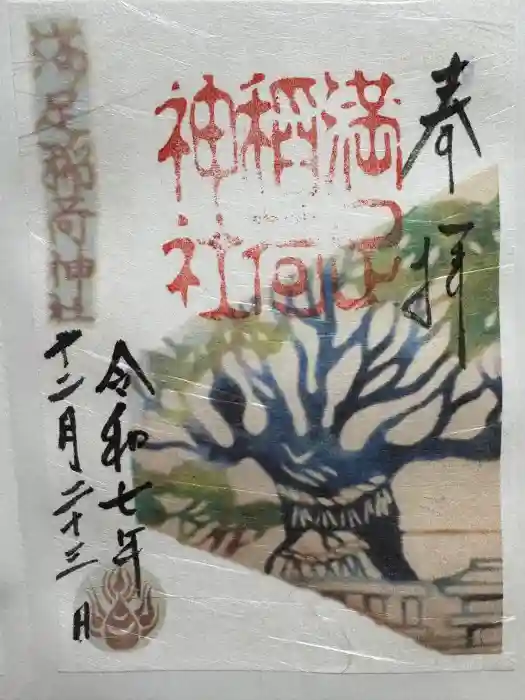 奉拝
満足稲荷神社
令和七年
十二月二十三日
満足稲荷神社